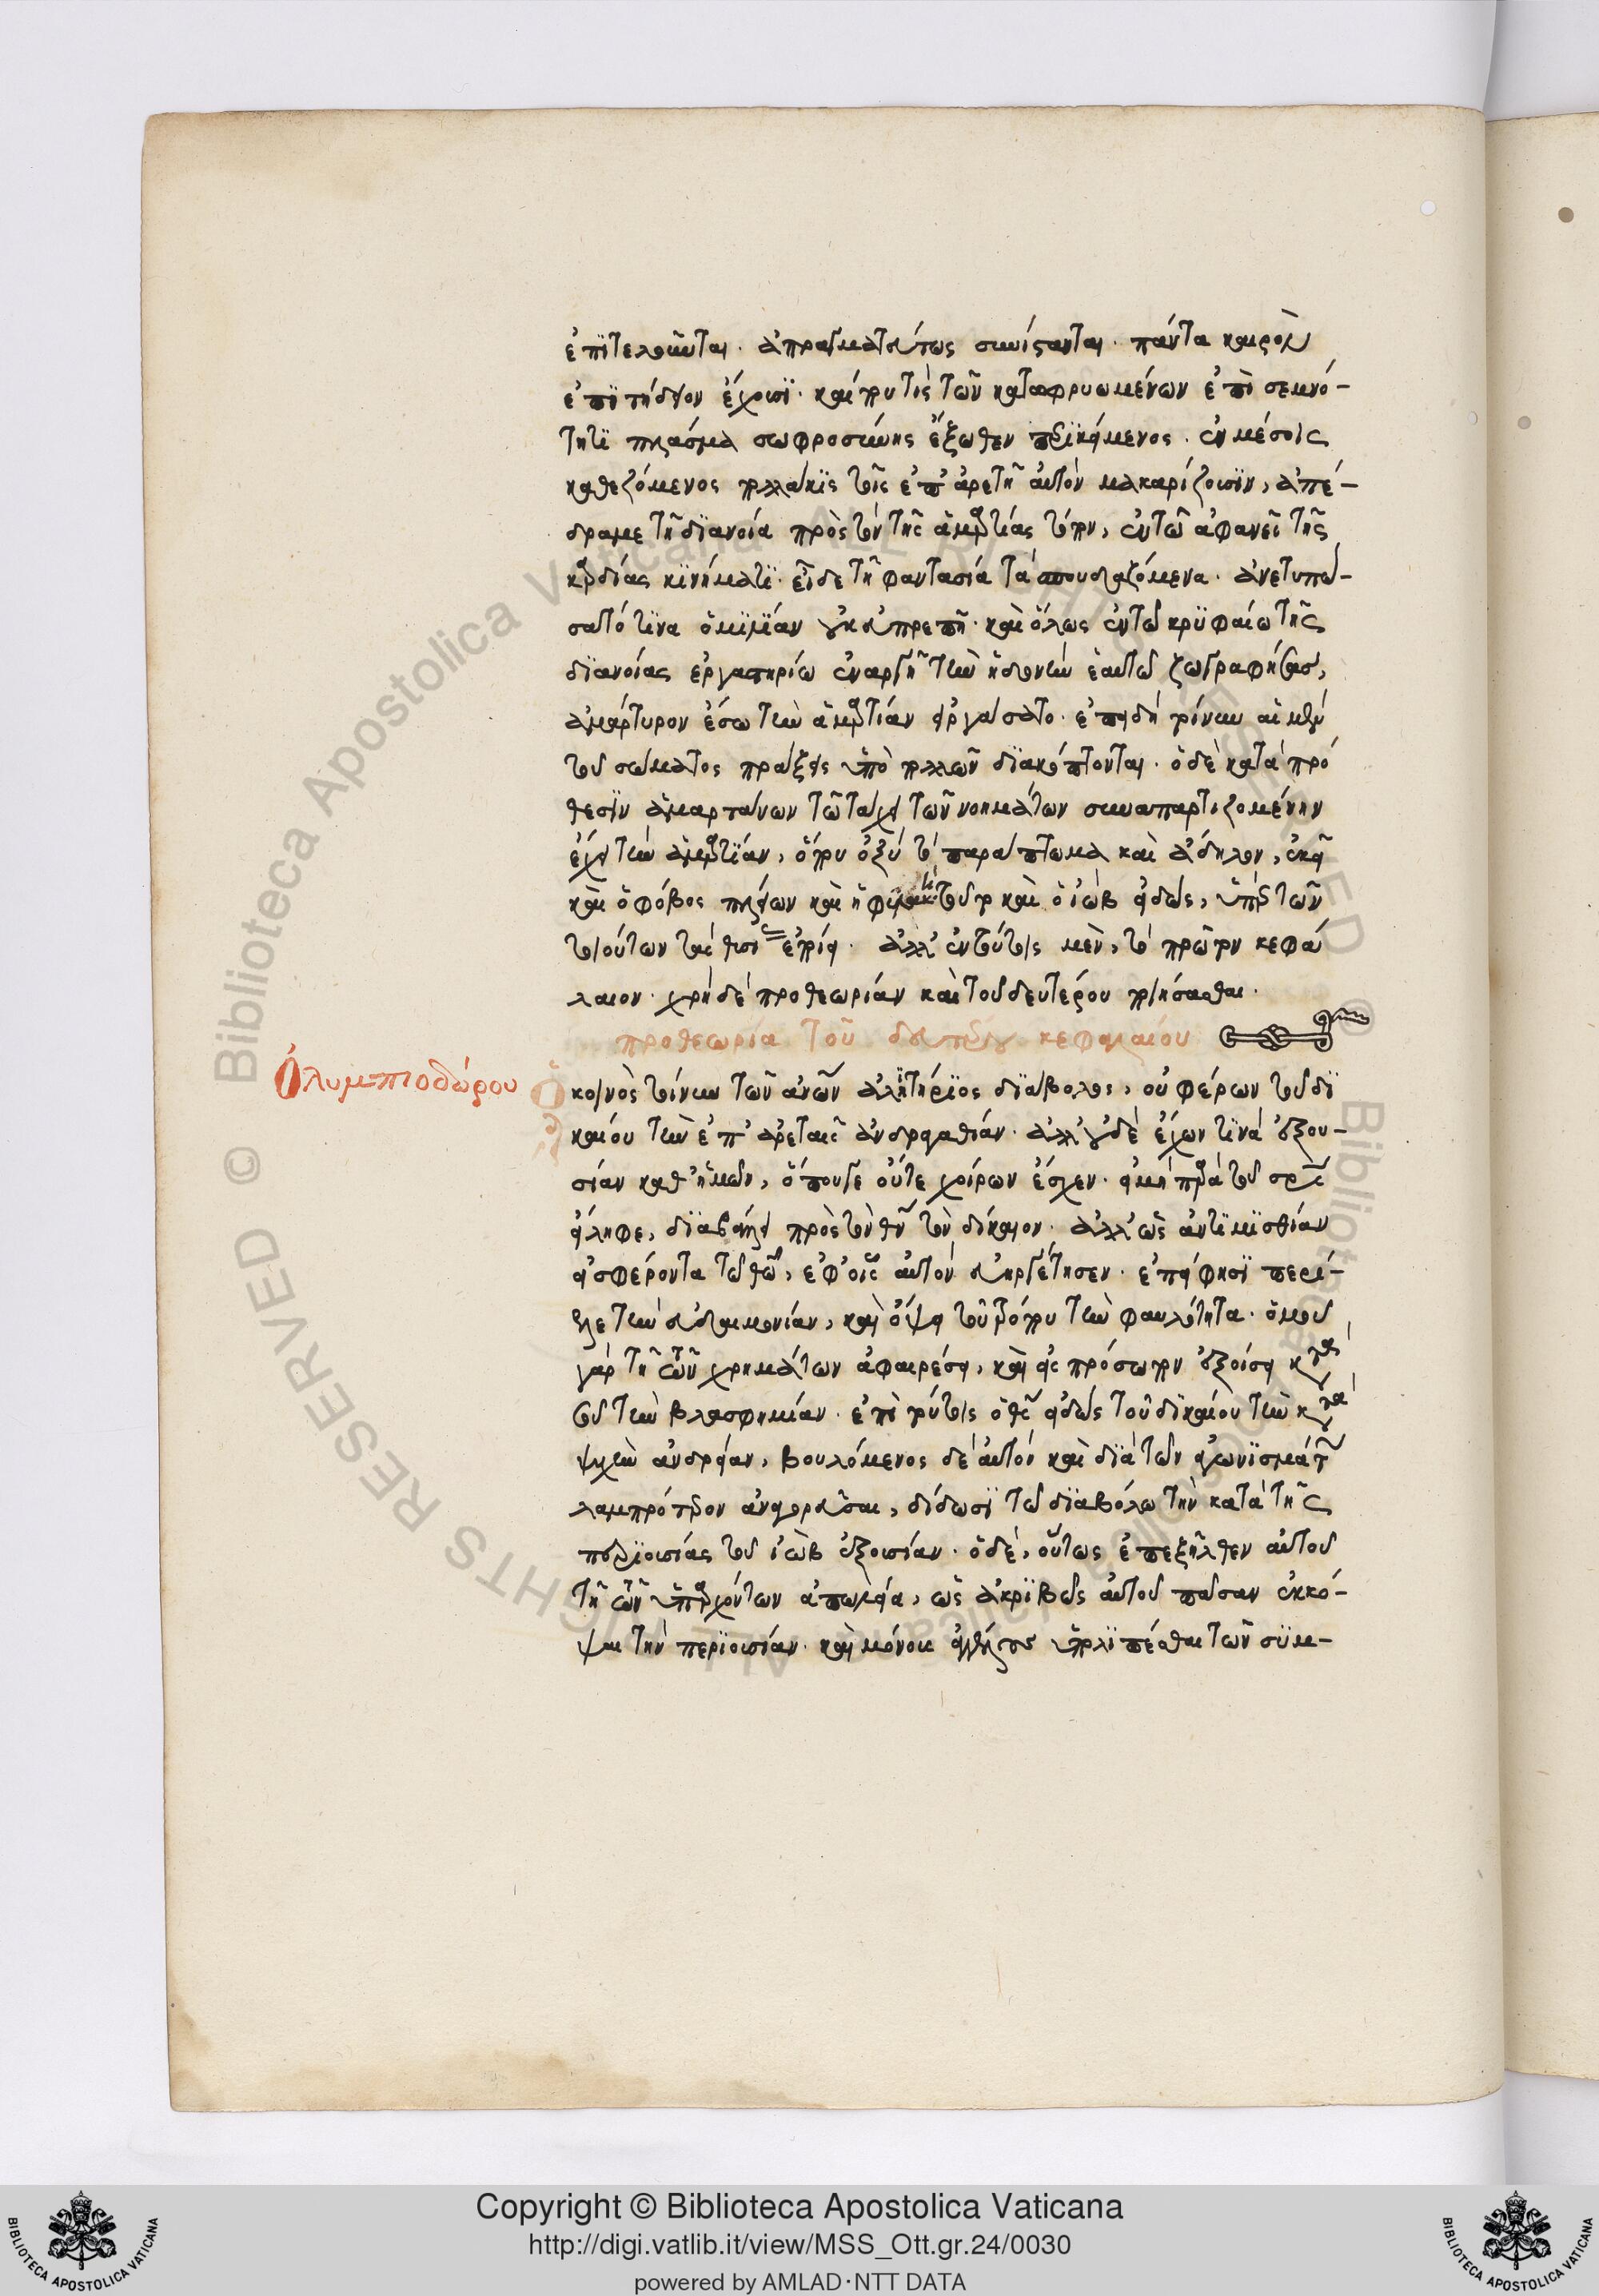 ἐπιτελοῦνται. ἀπραγματεύτως συνίστανται. πάντα καιρὸν
ἐπιτήδειον ἔχουσι. καί που τὶς τῶν κατωφρυωμένων ἐπὶ σεμνό-
τητι πλάσμα σωφροσύνης ἔξωθεν περικείμενος. ἐν μέσοις
καθεζόμενος πολλάκις τοῖς ἐπ' ἀρετῇ αὐτὸν μακαρίζουσιν, ἀπέ-
δραμε τῇ διανοία πρὸς τὸν τῆς ἁμαρτίας τόπον, ἐν τῶ ἀφανεῖ τῆς
καρδίας κινήματι. εἶδε τῇ φαντασία τὰ σπουδαζόμενα. ἀνετυπώ-
σατό τινα ὁμιλίαν οὐκ εὐπρεπῆ. καὶ ὅλως ἐν τῶ κρυφαίω τῆς
διανοίας ἐργαστηρίω ἐναργῆ τὴν ἡδονὴν ἑαυτῶ ζωγραφήσας,
ἀμάρτυρον ἔσω τὴν ἁμαρτίαν εἰργάσατο. ἐπειδὴ τοίνυν αἱ μὲν
τοῦ σώματος πράξεις ὑπὸ πολλῶν διακόπτονται. ὁ δὲ κατὰ πρό
θεσιν ἁμαρτάνων τῶ τάχει τῶν νοημάτων συναπαρτιζομένην
ἔχει τὴν ἁμαρτίαν, ὅπου ὀξὺ τὸ παράπτωμα καὶ ἄδηλον, ἐκεῖ
καὶ ὁ φόβος πλείων καὶ ἡ φυλακή. τοῦτο καὶ ὁ ἰὼβ εἰδὼς, ὑπὲρ τῶν
τοιούτων τὰς θυσίας ἐποίει. ἀλλ' ἐν τούτοις μὲν, τὸ πρῶτον κεφά
λαιον. χρὴ δὲ προθεωρίαν καὶ τοῦ δευτέρου ποιήσασθαι.
προθεωρία τοῦ δευτέρου κεφαλαίου
Ὀλυμπιοδώρου
Ὁ κοινὸς τοίνυν τῶν ἀνῶν ἀλητήριος διάβολος, οὐ φέρων τοῦ δι
καίου τὴν ἐπ' ἀρεταῖς ἀνδραγαθίαν. ἀλλ' οὐδὲ ἔχων τινὰ ἐξου-
σίαν καθ' ἡμῶν, ὅπουγε οὔτε χοίρων ἔσχεν. εἰ μὴ παρὰ τοῦ σρς
εἴληφε, διαβάλλει πρὸς τὸν θν τὸν δίκαιον. ἀλλ' ὡς ἀντιμισθίαν
εἰσφέροντα τῶ θῶ, ἐφ' οἷς αὐτὸν εὐηργέτησεν. ἐπεί φησι περί-
ελε τὴν εὐδαιμονίαν, καὶ ὄψει τοῦ τρόπου τὴν φαυλότητα. ὁμοῦ
γὰρ τῇ τῶν χρημάτων ἀφαιρέσει, καὶ εἰς πρόσωπον ἐξοίσει κατὰ
σοῦ τὴν βλασφημίαν. ἐπὶ τούτοις ὁ θς εἰδὼς τοῦ δικαίου τὴν κατὰ
ψυχὴν ἀνδρείαν, βουλόμενος δὲ αὐτὸν καὶ διὰ τῶν ἀγωνισμάτων
λαμπρότερον ἀναγορεῦσαι, δίδωσι τῶ διαβόλω τὴν κατὰ τῆς
περιουσίας τοῦ ἰὼβ ἐξουσίαν. ὁ δὲ, οὕτως ἐπεξῆλθεν αὐτοῦ
τῇ τῶν ὑπαρχόντων ἀπωλεία, ὡς ἀκριβῶς αὐτοῦ πᾶσαν ἐκκό-
ψαι τὴν περιουσίαν. καὶ μόνους ὑπολιπέσθαι τῶν συμ-
Copyright © Biblioteca Apostolica Vaticana
http://digi.vatlib.it/view/MSS_Ott.gr.24/0030
powered by AMLAD·NTT DATA
BIBLIOTECA APOSTOLICA VATICANA
BIBLIOTECA APOSTOLICA VATICANA
© Biblioteca Apostolica Vaticana ALL RIGHTS RESERVED